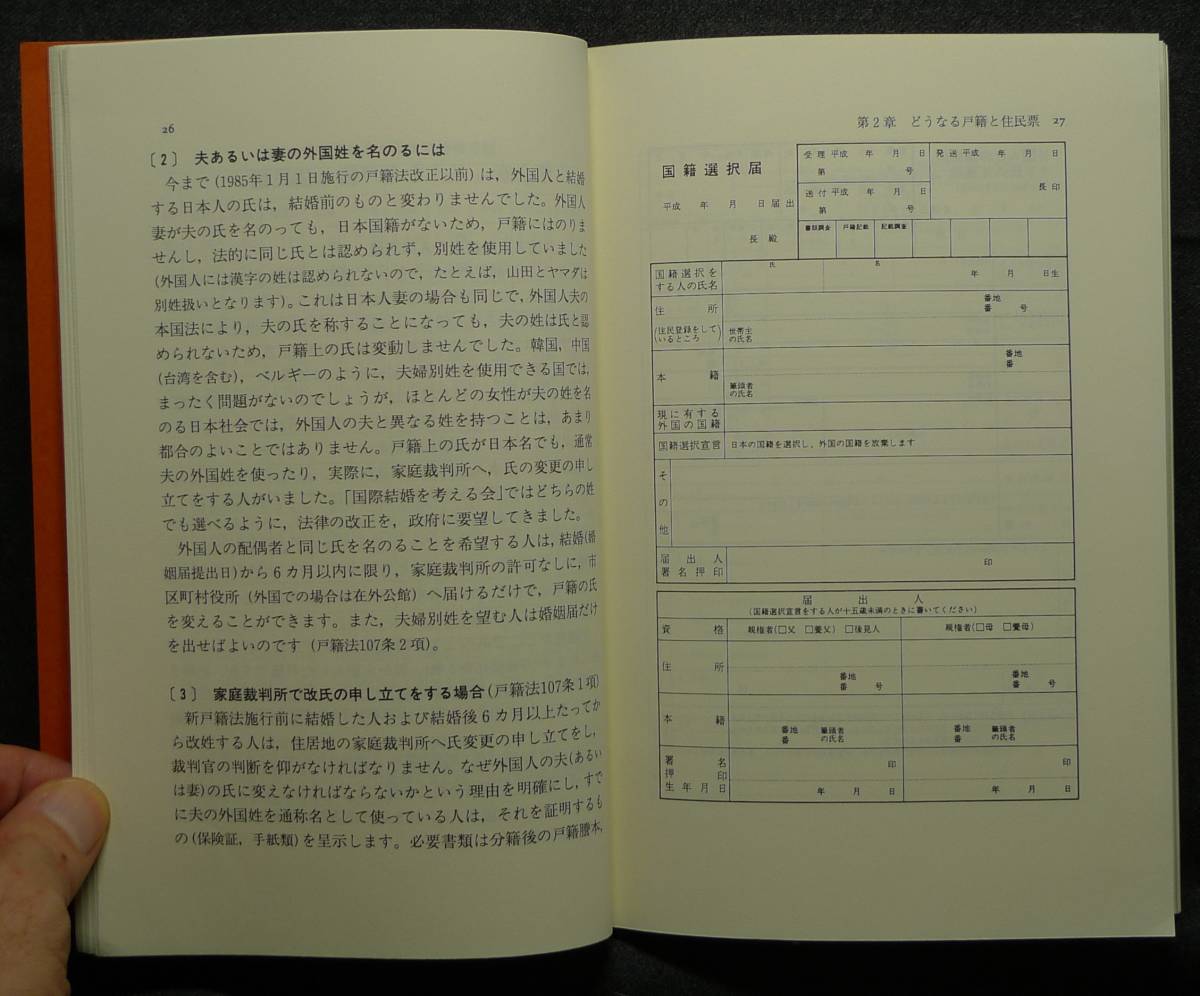 26
〔2〕 夫あるいは妻の外国姓を名のるには
今まで(1985年1月1日施行の戸籍法改正以前)は，外国人と結婚
する日本人の氏は，結婚前のものと変わりませんでした。外国人
妻が夫の氏を名のっても，日本国籍がないため，戸籍にはのりま
せんし，法的に同じ氏とは認められず，別姓を使用していました
(外国人には漢字の姓は認められないので，たとえば，山田とヤマダは
別姓扱いとなります)。これは日本人妻の場合も同じで，外国人夫の
本国法により，夫の氏を称することになっても，夫の姓は氏と認
められないため，戸籍上の氏は変動しませんでした。韓国，中国
(台湾を含む)，ベルギーのように，夫婦別姓を使用できる国では，
まったく問題がないのでしょうが，ほとんどの女性が夫の姓を名
のる日本社会では，外国人の夫と異なる姓を持つことは，あまり
都合のよいことではありません。戸籍上の氏が日本名でも，通常
夫の外国姓を使ったり，実際に，家庭裁判所へ，氏の変更の申し
立てをする人がいました。「国際結婚を考える会」ではどちらの姓
でも選べるように，法律の改正を，政府に要望してきました。
外国人の配偶者と同じ氏を名のることを希望する人は，結婚(婚
姻届提出日)から6カ月以内に限り，家庭裁判所の許可なしに，市
区町村役所（外国での場合は在外公館）へ届けるだけで，戸籍の氏
を変えることができます。また，夫婦別姓を望む人は婚姻届だけ
を出せばよいのです（戸籍法107条2項）。
〔3〕 家庭裁判所で改氏の申し立てをする場合(戸籍法107条1項)
新戸籍法施行前に結婚した人および結婚後6カ月以上たってか
ら改姓する人は，住居地の家庭裁判所へ氏変更の申し立てをし，
裁判官の判断を仰がなければなりません。なぜ外国人の夫(あるい
は妻)の氏に変えなければならないかという理由を明確にし，すで
に夫の外国姓を通称名として使っている人は，それを証明するも
の(保険証，手紙類)を呈示します。必要書類は分籍後の戸籍謄本，
第2章 どうなる戸籍と住民票 27
国籍選択届
平成 年 月 日届出
長 殿
受理 平成 年 月 日
第 号
送付 平成 年 月 日
第 号
発送 平成 年 月 日
長印
書類調査 戸籍記載 記載調査
国籍選択を
する人の氏名
氏 名
年 月 日生
住 所
(住民登録をして
いるところ)
番地
番 号
世帯主
の氏名
本 籍
番地
番
筆頭者
の氏名
現に有する
外国の国籍
国籍選択宣言 日本の国籍を選択し、外国の国籍を放棄します
その他
届出人
署名押印
印
届出人
(国籍選択宣言をする人が十五歳未満のときに書いてください)
資格 親権者(□父 □養父) □後見人 親権者(□母 □養母)
住所
番地 番地
番 号 番 号
本籍
番地 筆頭者 番地 筆頭者
番 の氏名 番 の氏名
署名
押印
生年月日
印 印
年 月 日 年 月 日